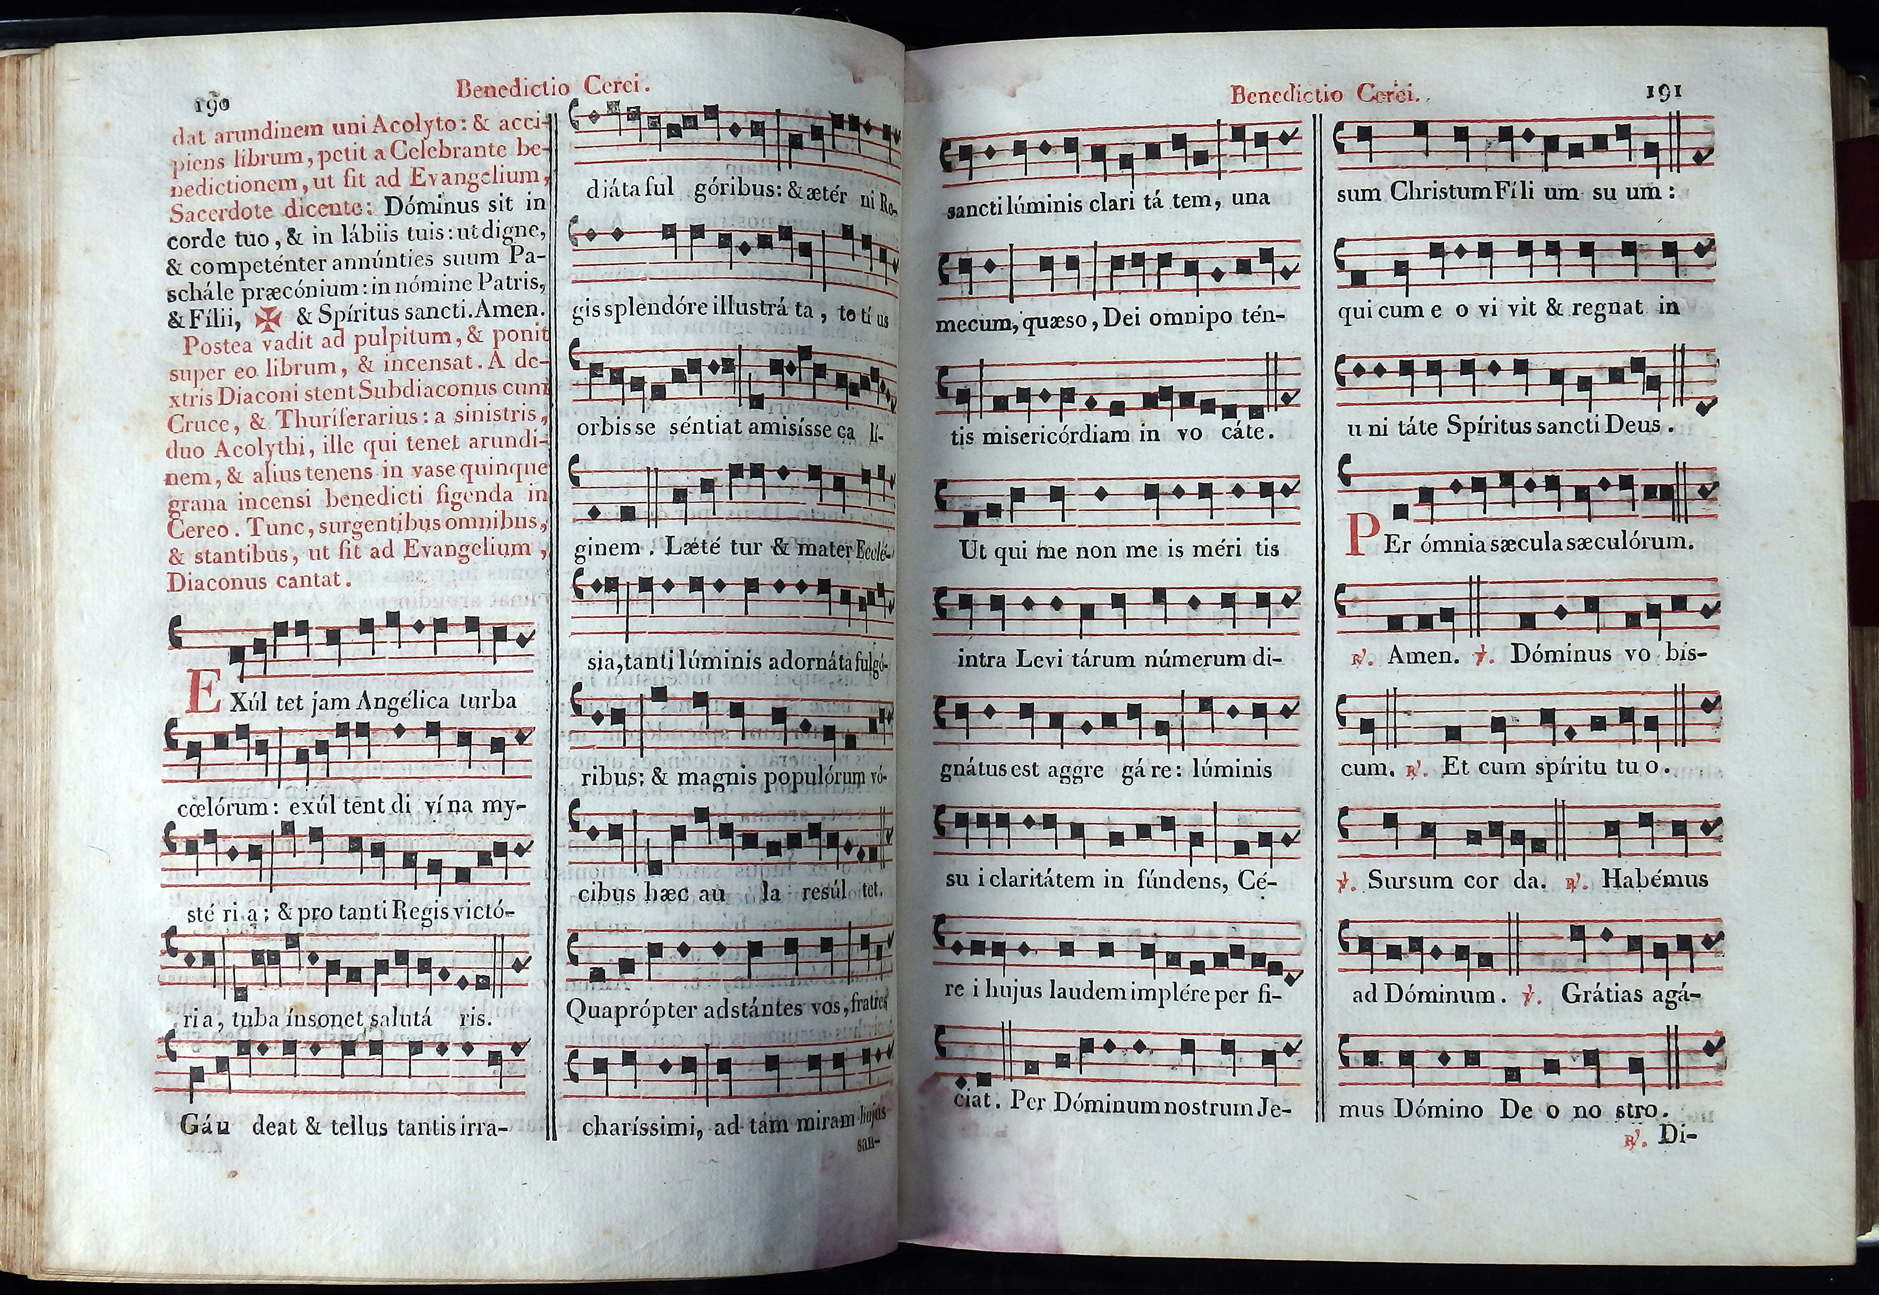 190
Benedictio Cerei.
dat arundinem uni Acolyto: & acci-
piens librum, petit a Celebrante be-
nedictionem, ut fit ad Evangelium,
Sacerdote dicente: Dóminus sit in
corde tuo, & in lábiis tuis: ut digne,
& competénter annúnties suum Pa-
schále præcónium: in nómine Patris,
& Fílii, ✠ & Spíritus sancti. Amen.
Postea vadit ad pulpitum, & ponit
super eo librum, & incensat. A de-
xtris Diaconi stent Subdiaconus cum
Cruce, & Thuriferarius: a sinistris,
duo Acolythi, ille qui tenet arundi-
nem, & alius tenens in vase quinque
grana incensi benedicti figenda in
Cereo. Tunc, surgentibus omnibus,
& stantibus, ut fit ad Evangelium,
Diaconus cantat.
EXúl tet jam Angélica turba
cœlórum: exúl tent di vína my-
sté ri a; & pro tanti Regis victó-
ri a, tuba ínsonet salutá ris.
Gáu deat & tellus tantis irra-
diáta ful góribus: & ætér ni Ro-
gis splendóre illustrá ta, to tí us
orbis se séntiat amisísse ca lí-
ginem. Læté tur & mater Ecclé-
sia, tanti lúminis adornáta fulgó-
ribus; & magnis populórum vó-
cibus hæc au la resúl tet.
Quaprópter adstántes vos, fratres
charíssimi, ad tam miram hujus
san-
Benedictio Cerei.
191
sancti lúminis clari tá tem, una
mecum, quæso, Dei omnipo tén-
tis misericórdiam in vo cáte.
Ut qui me non me is méri tis
intra Levi tárum númerum di-
gnátus est aggre gá re: lúminis
su i claritátem in fúndens, Cé-
re i hujus laudem implére per fi-
ciat. Per Dóminum nostrum Je-
sum Christum Fíli um su um:
qui cum e o vi vit & regnat in
u ni táte Spíritus sancti Deus.
PEr ómnia sæcula sæculórum.
℟. Amen. ℣. Dóminus vo bis-
cum. ℟. Et cum spíritu tu o.
℣. Sursum cor da. ℟. Habémus
ad Dóminum. ℣. Grátias agá-
mus Dómino De o no stro.
℟. Di-